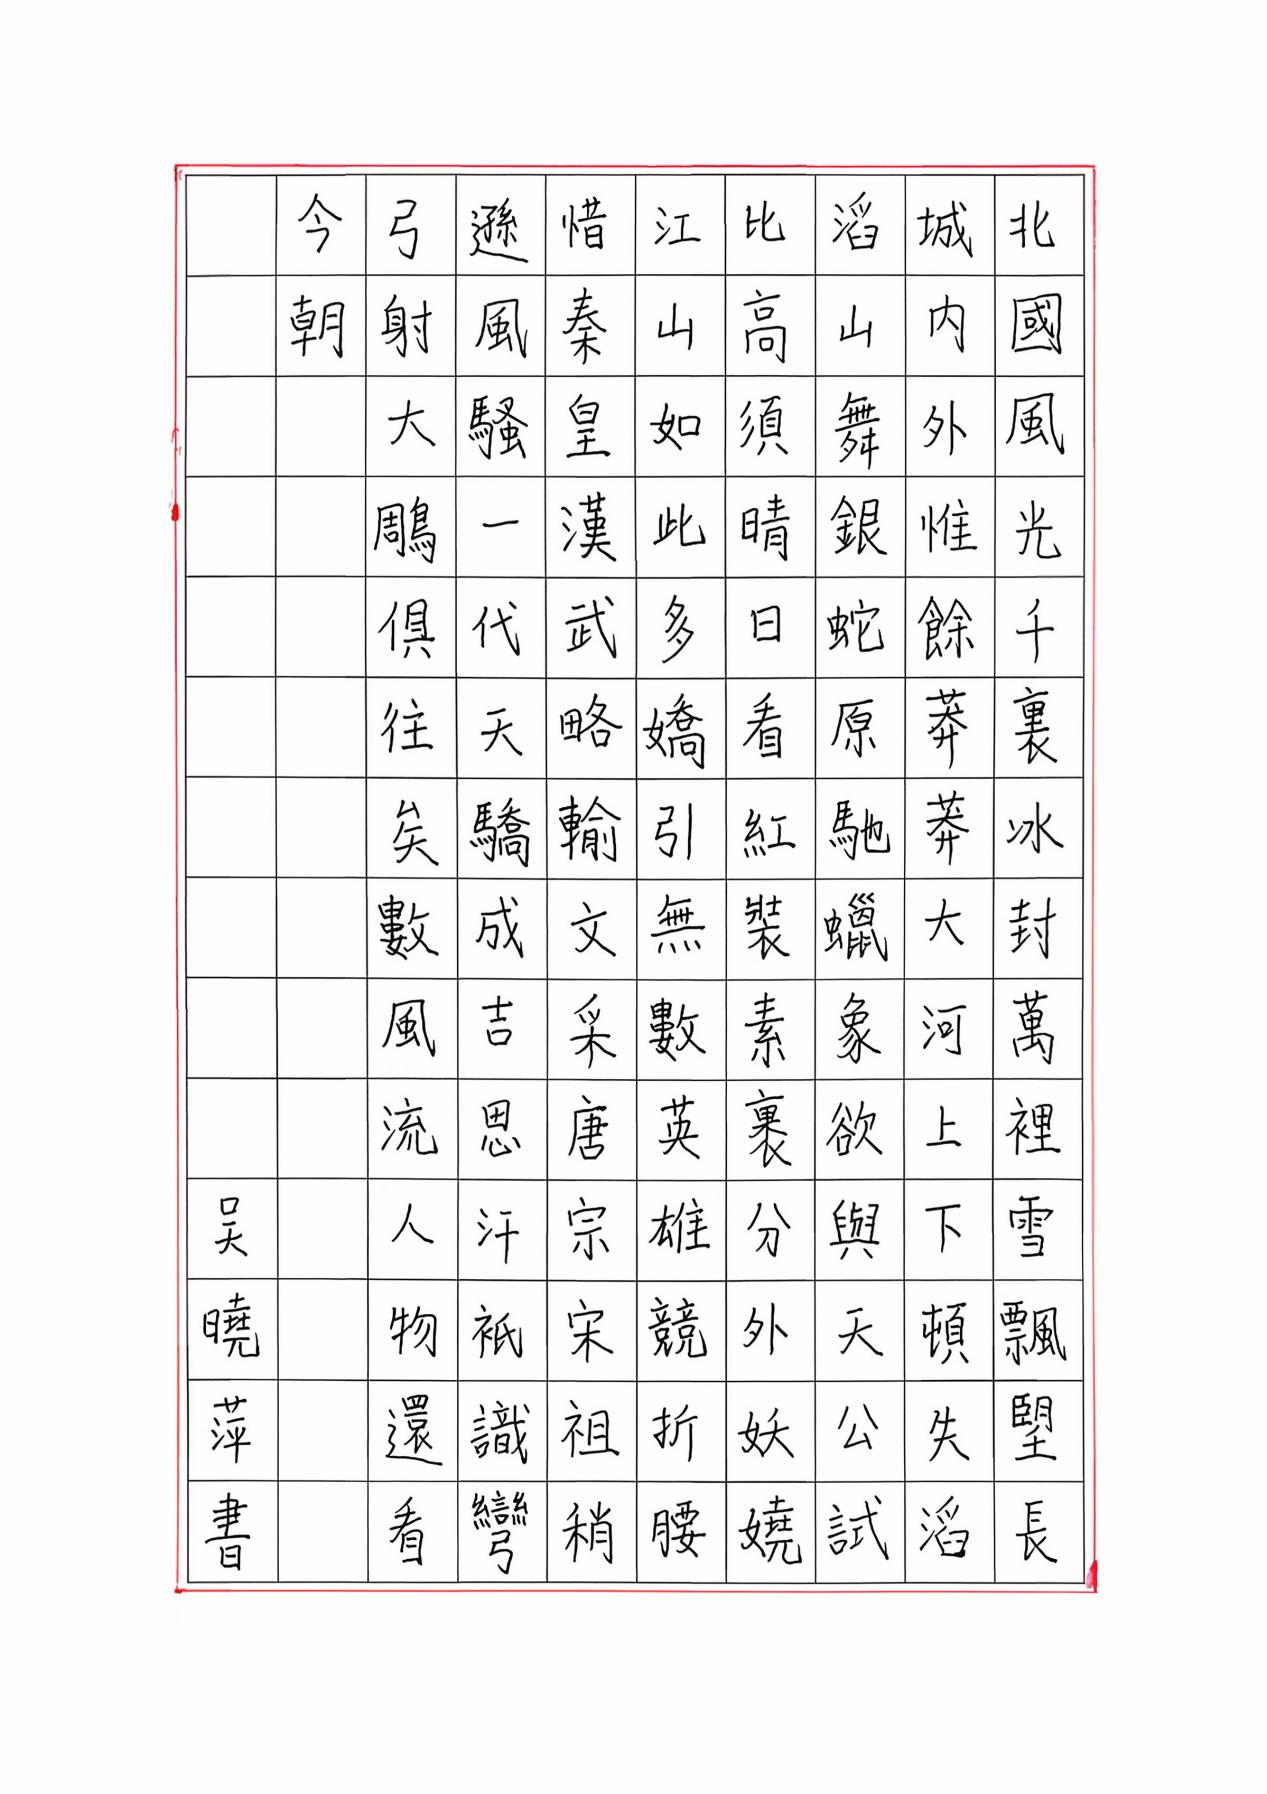 北國風光千裏冰封萬裡雪飄朢長
城内外惟餘莽莽大河上下頓失滔
滔山舞銀蛇原馳蠟象欲與天公試
比高須晴日看紅裝素裹分外妖嬈
江山如此多嬌引無數英雄競折腰
惜秦皇漢武略輸文采唐宗宋祖稍
遜風騷一代天驕成吉思汗衹識彎
弓射大鵰俱往矣數風流人物還看
今朝
吴曉萍書